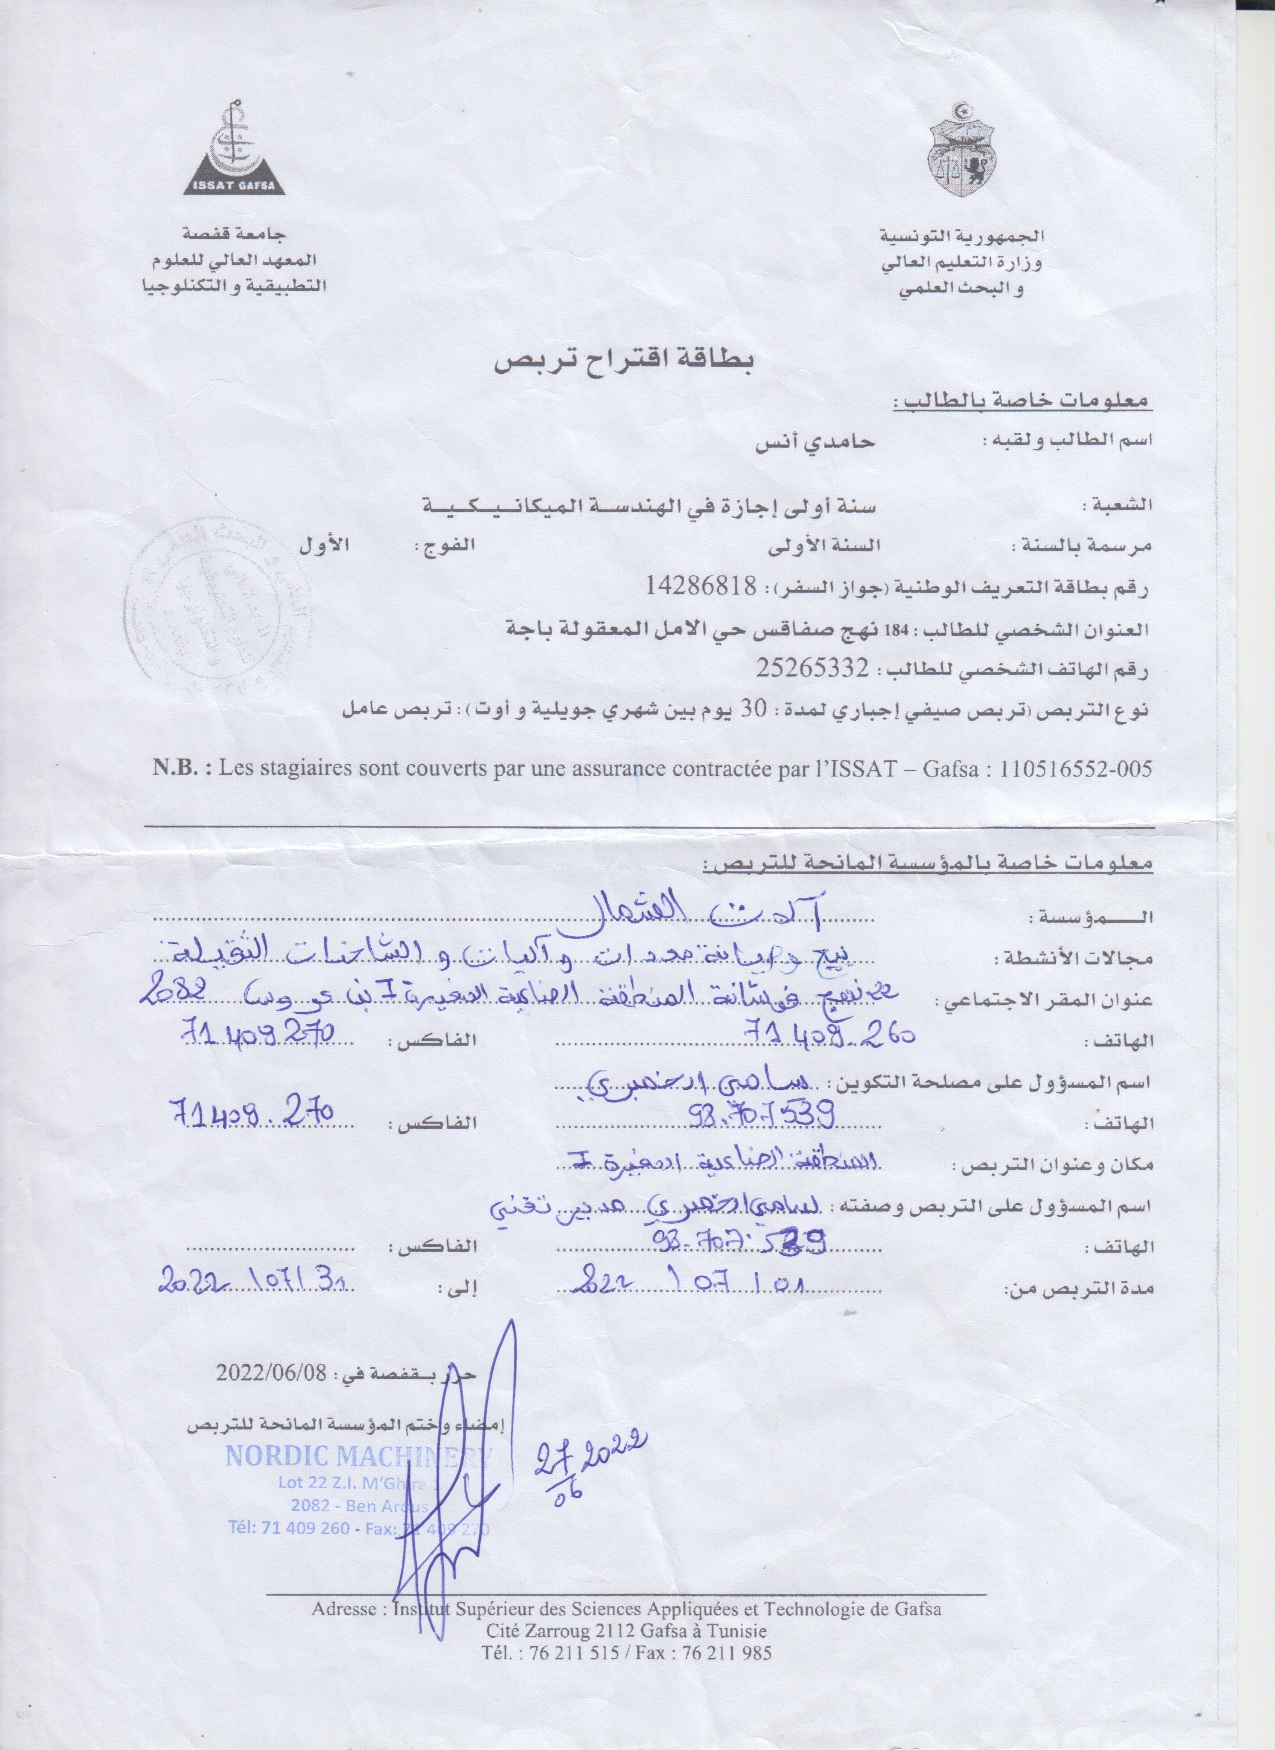 ISSAT GAFSA
الجمهورية التونسية
وزارة التعليم العالي
و البحث العلمي
جامعة قفصة
المعهد العالي للعلوم
التطبيقية و التكنلوجيا
بطاقة اقتراح تربص
معلومات خاصة بالطالب :
اسم الطالب ولقبه : حامدي أنس
الشعبة : سنة أولى إجازة في الهندسة الميكانيكية
مرسمة بالسنة : السنة الأولى الفوج : الأول
رقم بطاقة التعريف الوطنية (جواز السفر) : 14286818
العنوان الشخصي للطالب : 184 نهج صفاقس حي الامل المعقولة باجة
رقم الهاتف الشخصي للطالب : 25265332
نوع التربص (تربص صيفي إجباري لمدة : 30 يوم بين شهري جويلية و أوت) : تربص عامل
N.B. : Les stagiaires sont couverts par une assurance contractée par l'ISSAT – Gafsa : 110516552-005
معلومات خاصة بالمؤسسة المانحة للتربص :
المؤسسة : آلات الشمال
مجالات الأنشطة : بيع وصيانة معدات وآليات و الشاحنات الثقيلة
عنوان المقر الاجتماعي : 22 نهج فوشانة المنطقة الصناعية المغيرة I بن عروس 2082
الهاتف : 71 409 260 الفاكس : 71 409 270
اسم المسؤول على مصلحة التكوين : سامي
الهاتف : 93.707539 الفاكس : 71409.270
مكان وعنوان التربص : المنطقة الصناعية المغيرة I
اسم المسؤول على التربص وصفته : سامي مدير تقني
الهاتف : 93.707.539 الفاكس :
مدة التربص من: 01 / 07 / 2022 إلى : 31 / 07 / 2022
حرر بـقفصة في : 2022/06/08
إمضاء وختم المؤسسة المانحة للتربص
NORDIC MACHINERY
Lot 22 Z.I. M'Ghira
2082 - Ben Arous
Tél: 71 409 260 - Fax: 71 409 270
27 2022
06
Adresse : Institut Supérieur des Sciences Appliquées et Technologie de Gafsa
Cité Zarroug 2112 Gafsa à Tunisie
Tél. : 76 211 515 / Fax : 76 211 985